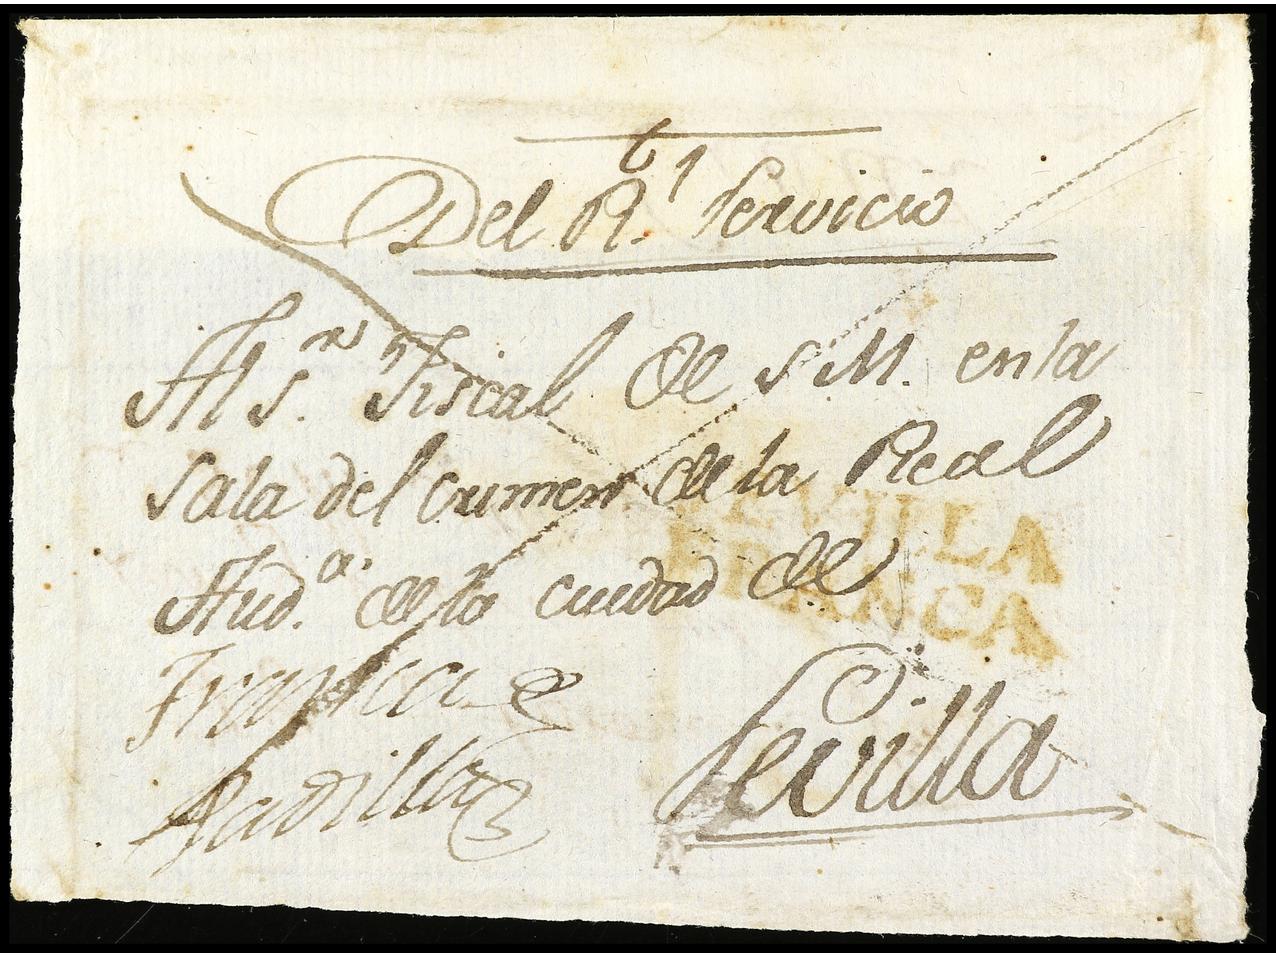 t
Del Rl. Servicio
Al Sr. Fiscal de S M. en la
Sala del crimen de la Real
Auda. de la ciudad de
Sevilla
SEVILLA
FRANCA
Padilla